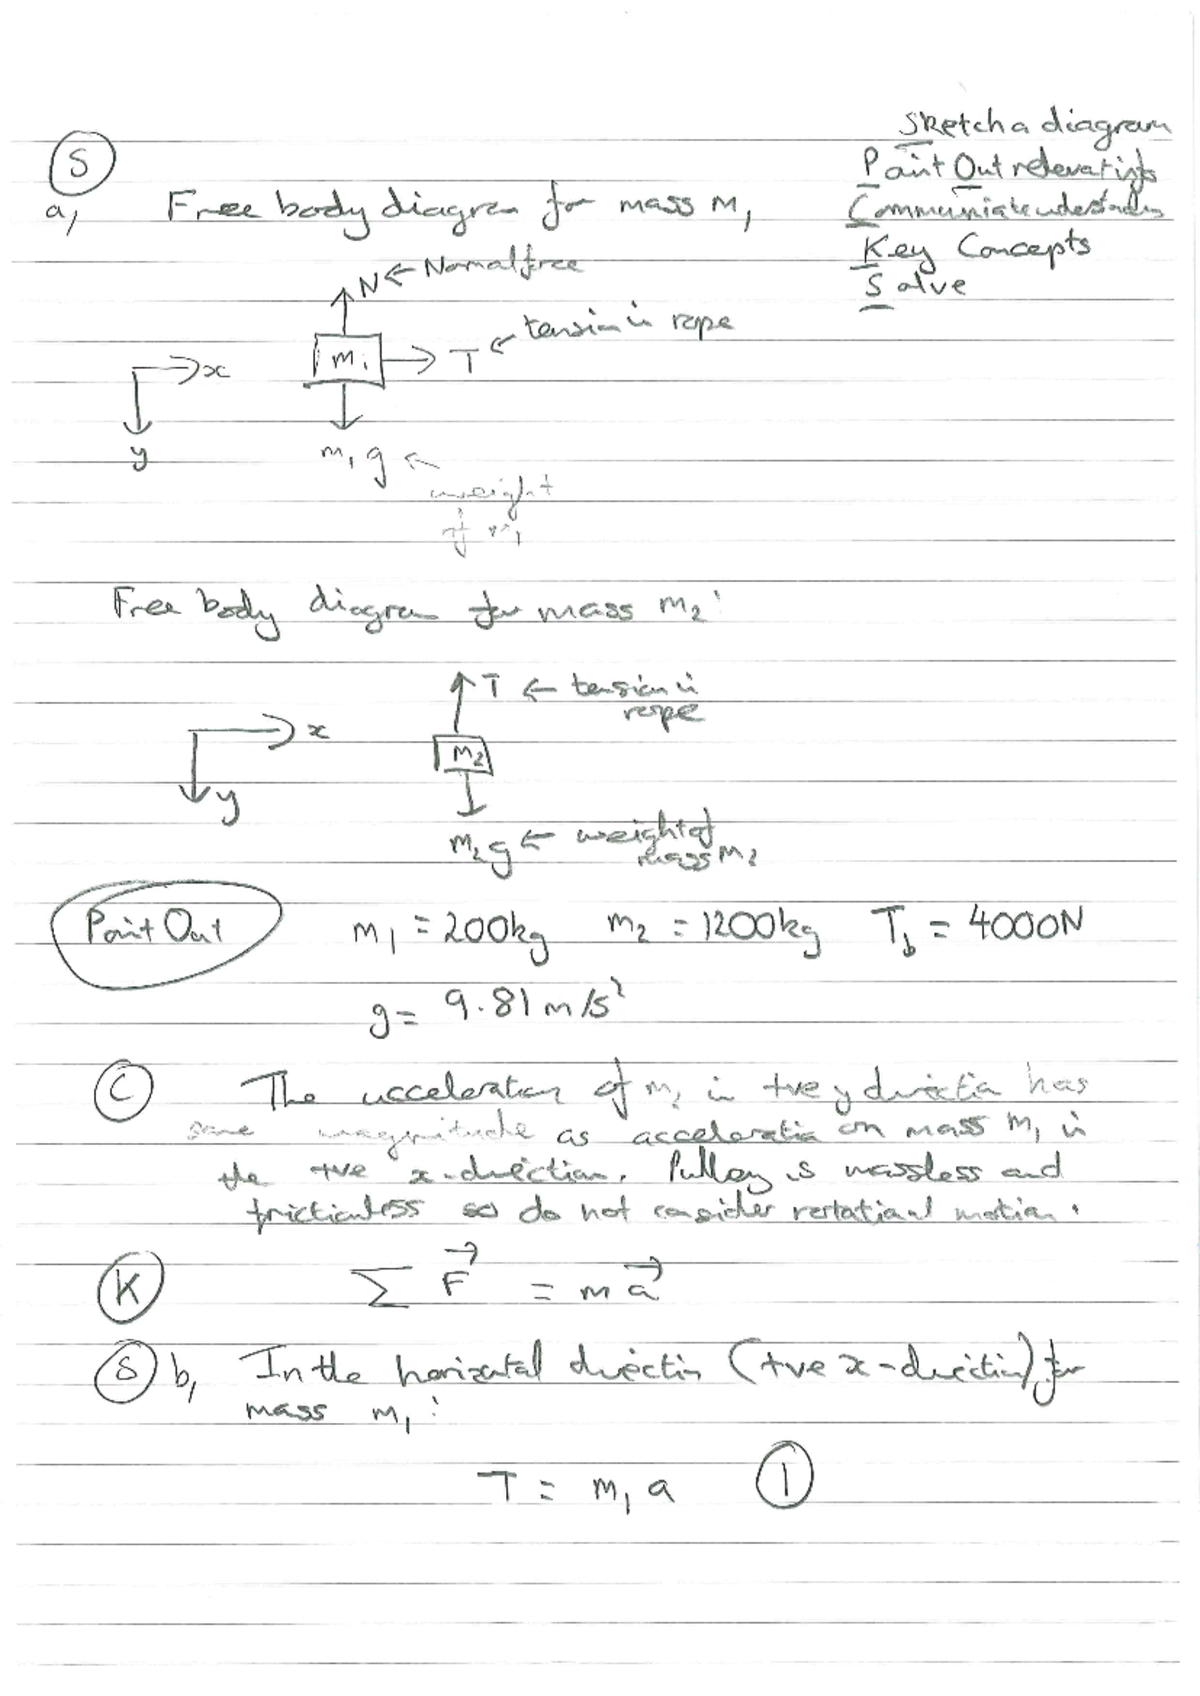 Sketch a diagram
Point Out relevant info
Communicate understanding
Key Concepts
Solve
S
a, Free body diagram for mass m₁
N ← Normal force
m₁ → T ← tension in rope
x
y
m₁g ←
weight
of m₁
Free body diagram for mass m₂:
T ← tension in
rope
x
m₂
y
m₂g ← weight of
mass m₂
Point Out m₁ = 200kg m₂ = 1200kg T_b = 4000N
g = 9.81 m/s²
C The acceleration of m₂ in +ve y direction has
same magnitude as acceleration on mass m₁ in
the +ve x-direction. Pulley is massless and
frictionless so do not consider rotational motion.
K ∑ F⃗ = m a⃗
S b, In the horizontal direction (+ve x-direction) for
mass m₁:
T = m₁ a 1